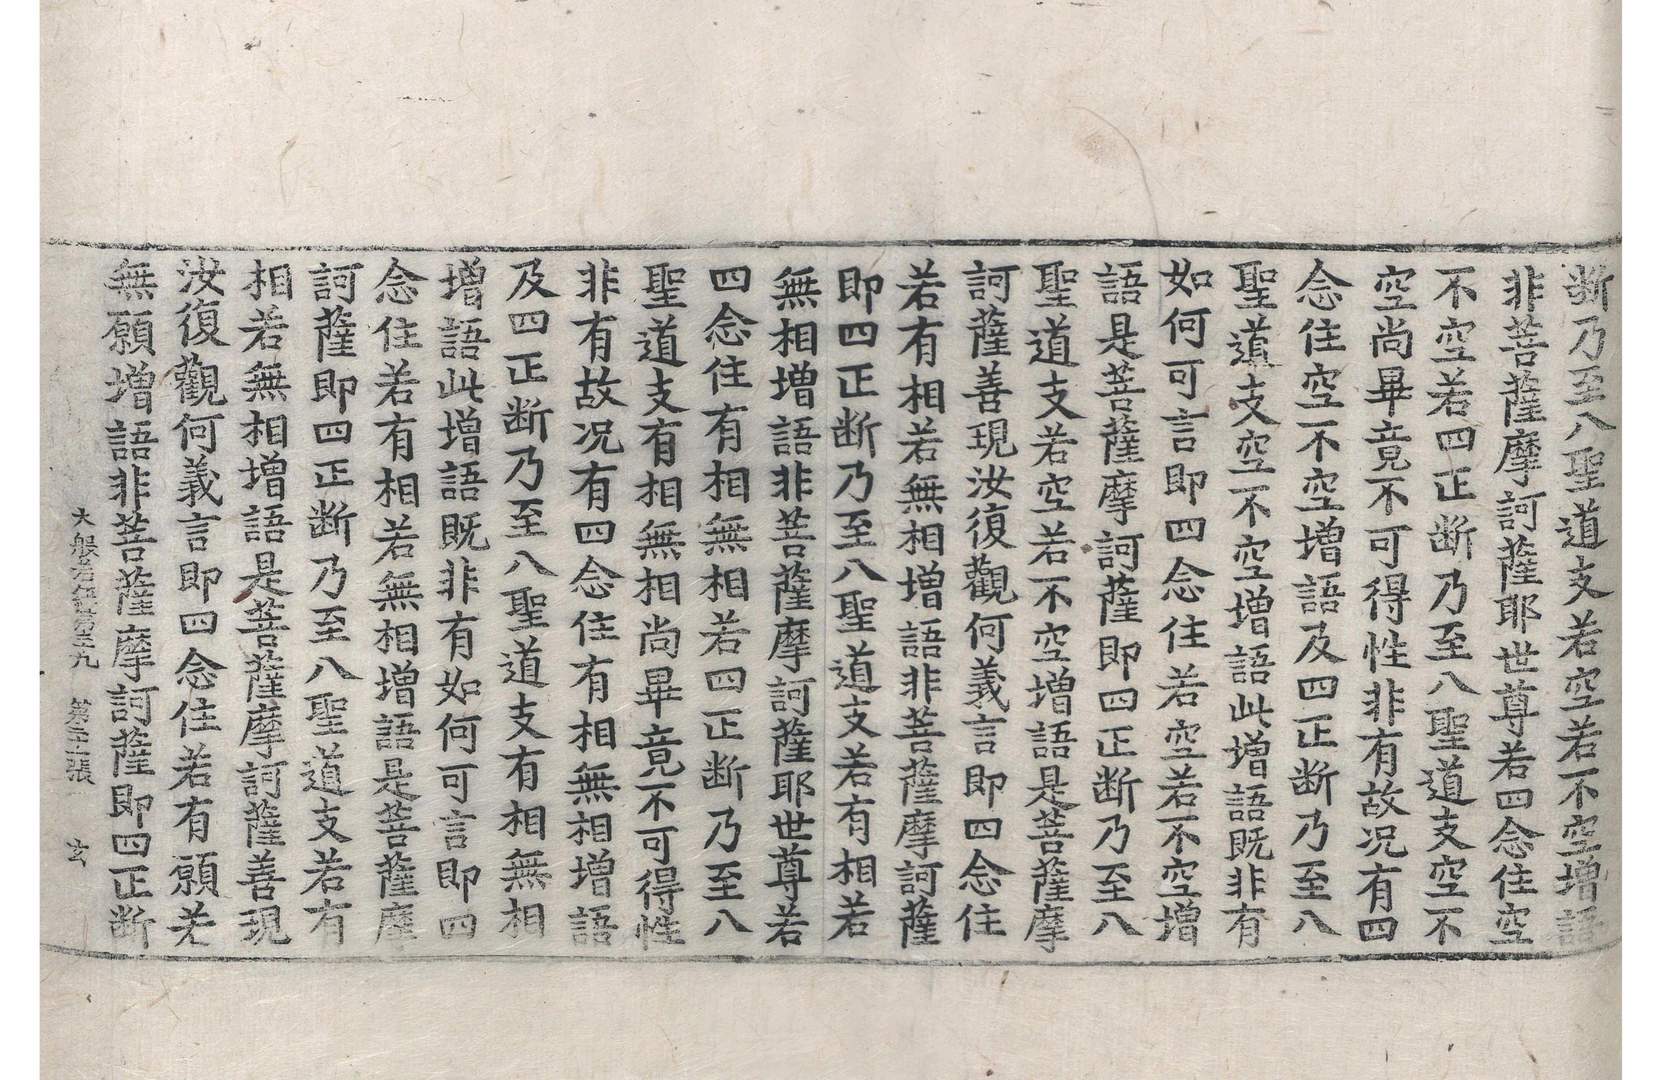 断乃至八聖道支若空若不空增語
非菩薩摩訶薩耶世尊若四念住空
不空若四正断乃至八聖道支空不
空尚畢竟不可得性非有故况有四
念住空不空增語及四正断乃至八
聖道支空不空增語此增語既非有
如何可言即四念住若空若不空增
語是菩薩摩訶薩即四正断乃至八
聖道支若空若不空增語是菩薩摩
訶薩善現汝復觀何義言即四念住
若有相若無相增語非菩薩摩訶薩
即四正断乃至八聖道支若有相若
無相增語非菩薩摩訶薩耶世尊若
四念住有相無相若四正断乃至八
聖道支有相無相尚畢竟不可得性
非有故况有四念住有相無相增語
及四正断乃至八聖道支有相無相
增語此增語既非有如何可言即四
念住若有相若無相增語是菩薩摩
訶薩即四正断乃至八聖道支若有
相若無相增語是菩薩摩訶薩善現
汝復觀何義言即四念住若有願若
無願增語非菩薩摩訶薩即四正断
大般若 九 第 張 玄